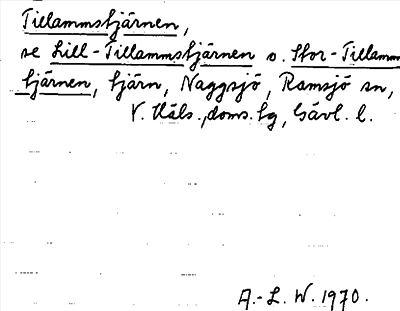 Tillammstjärnen,
se Lill-Tillammstjärnen o. Stor-Tillamms
tjärnen, tjärn, Naggsjö, Ramsjö sn,
V. Häls. doms. lg, Gävl. l.
A.-L. W. 1970.